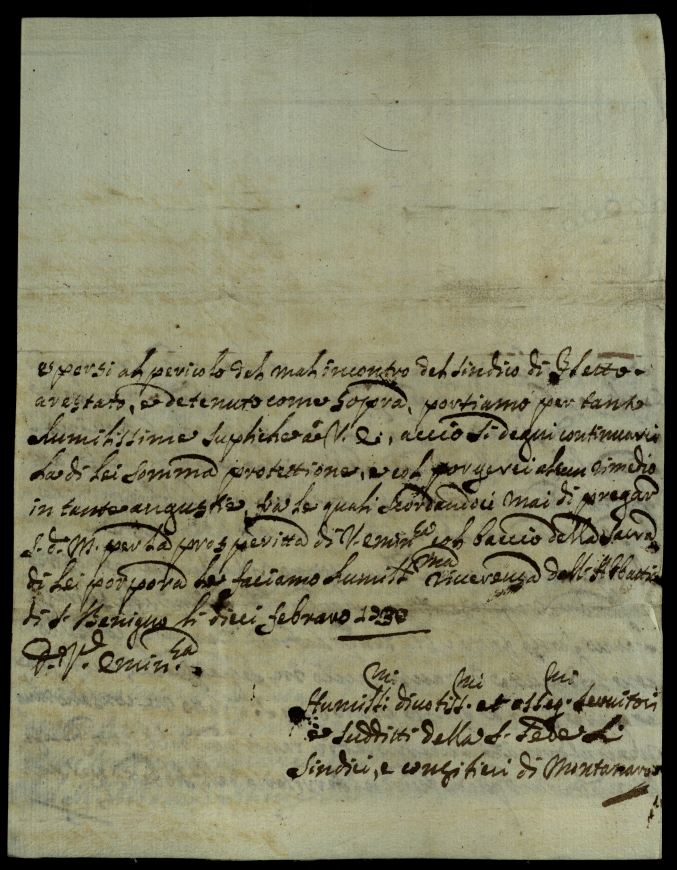 espersi al pericolo del mal incontro del sindico di Feletto
arestato, e detenuto come sopra, portiamo per tanto
humilissime supliche à V. E., acciò si degni continuarci
la di lei somma protettione, e col porgerci alcun rimedio
in tante angustie, fra le quali scordandoci mai di pregar
S. d. M. per la prosperittà di V. eminza col baccio della sacra
di lei porpora le faciamo humilma riverenza dall'Abbattia
di S. Benigno li dieci febraro
D. V. eminza
Humilmi divotissmi et osseqmi servitori
e sudditti della S. Sede li
sindici, e consilieri di Montanaro